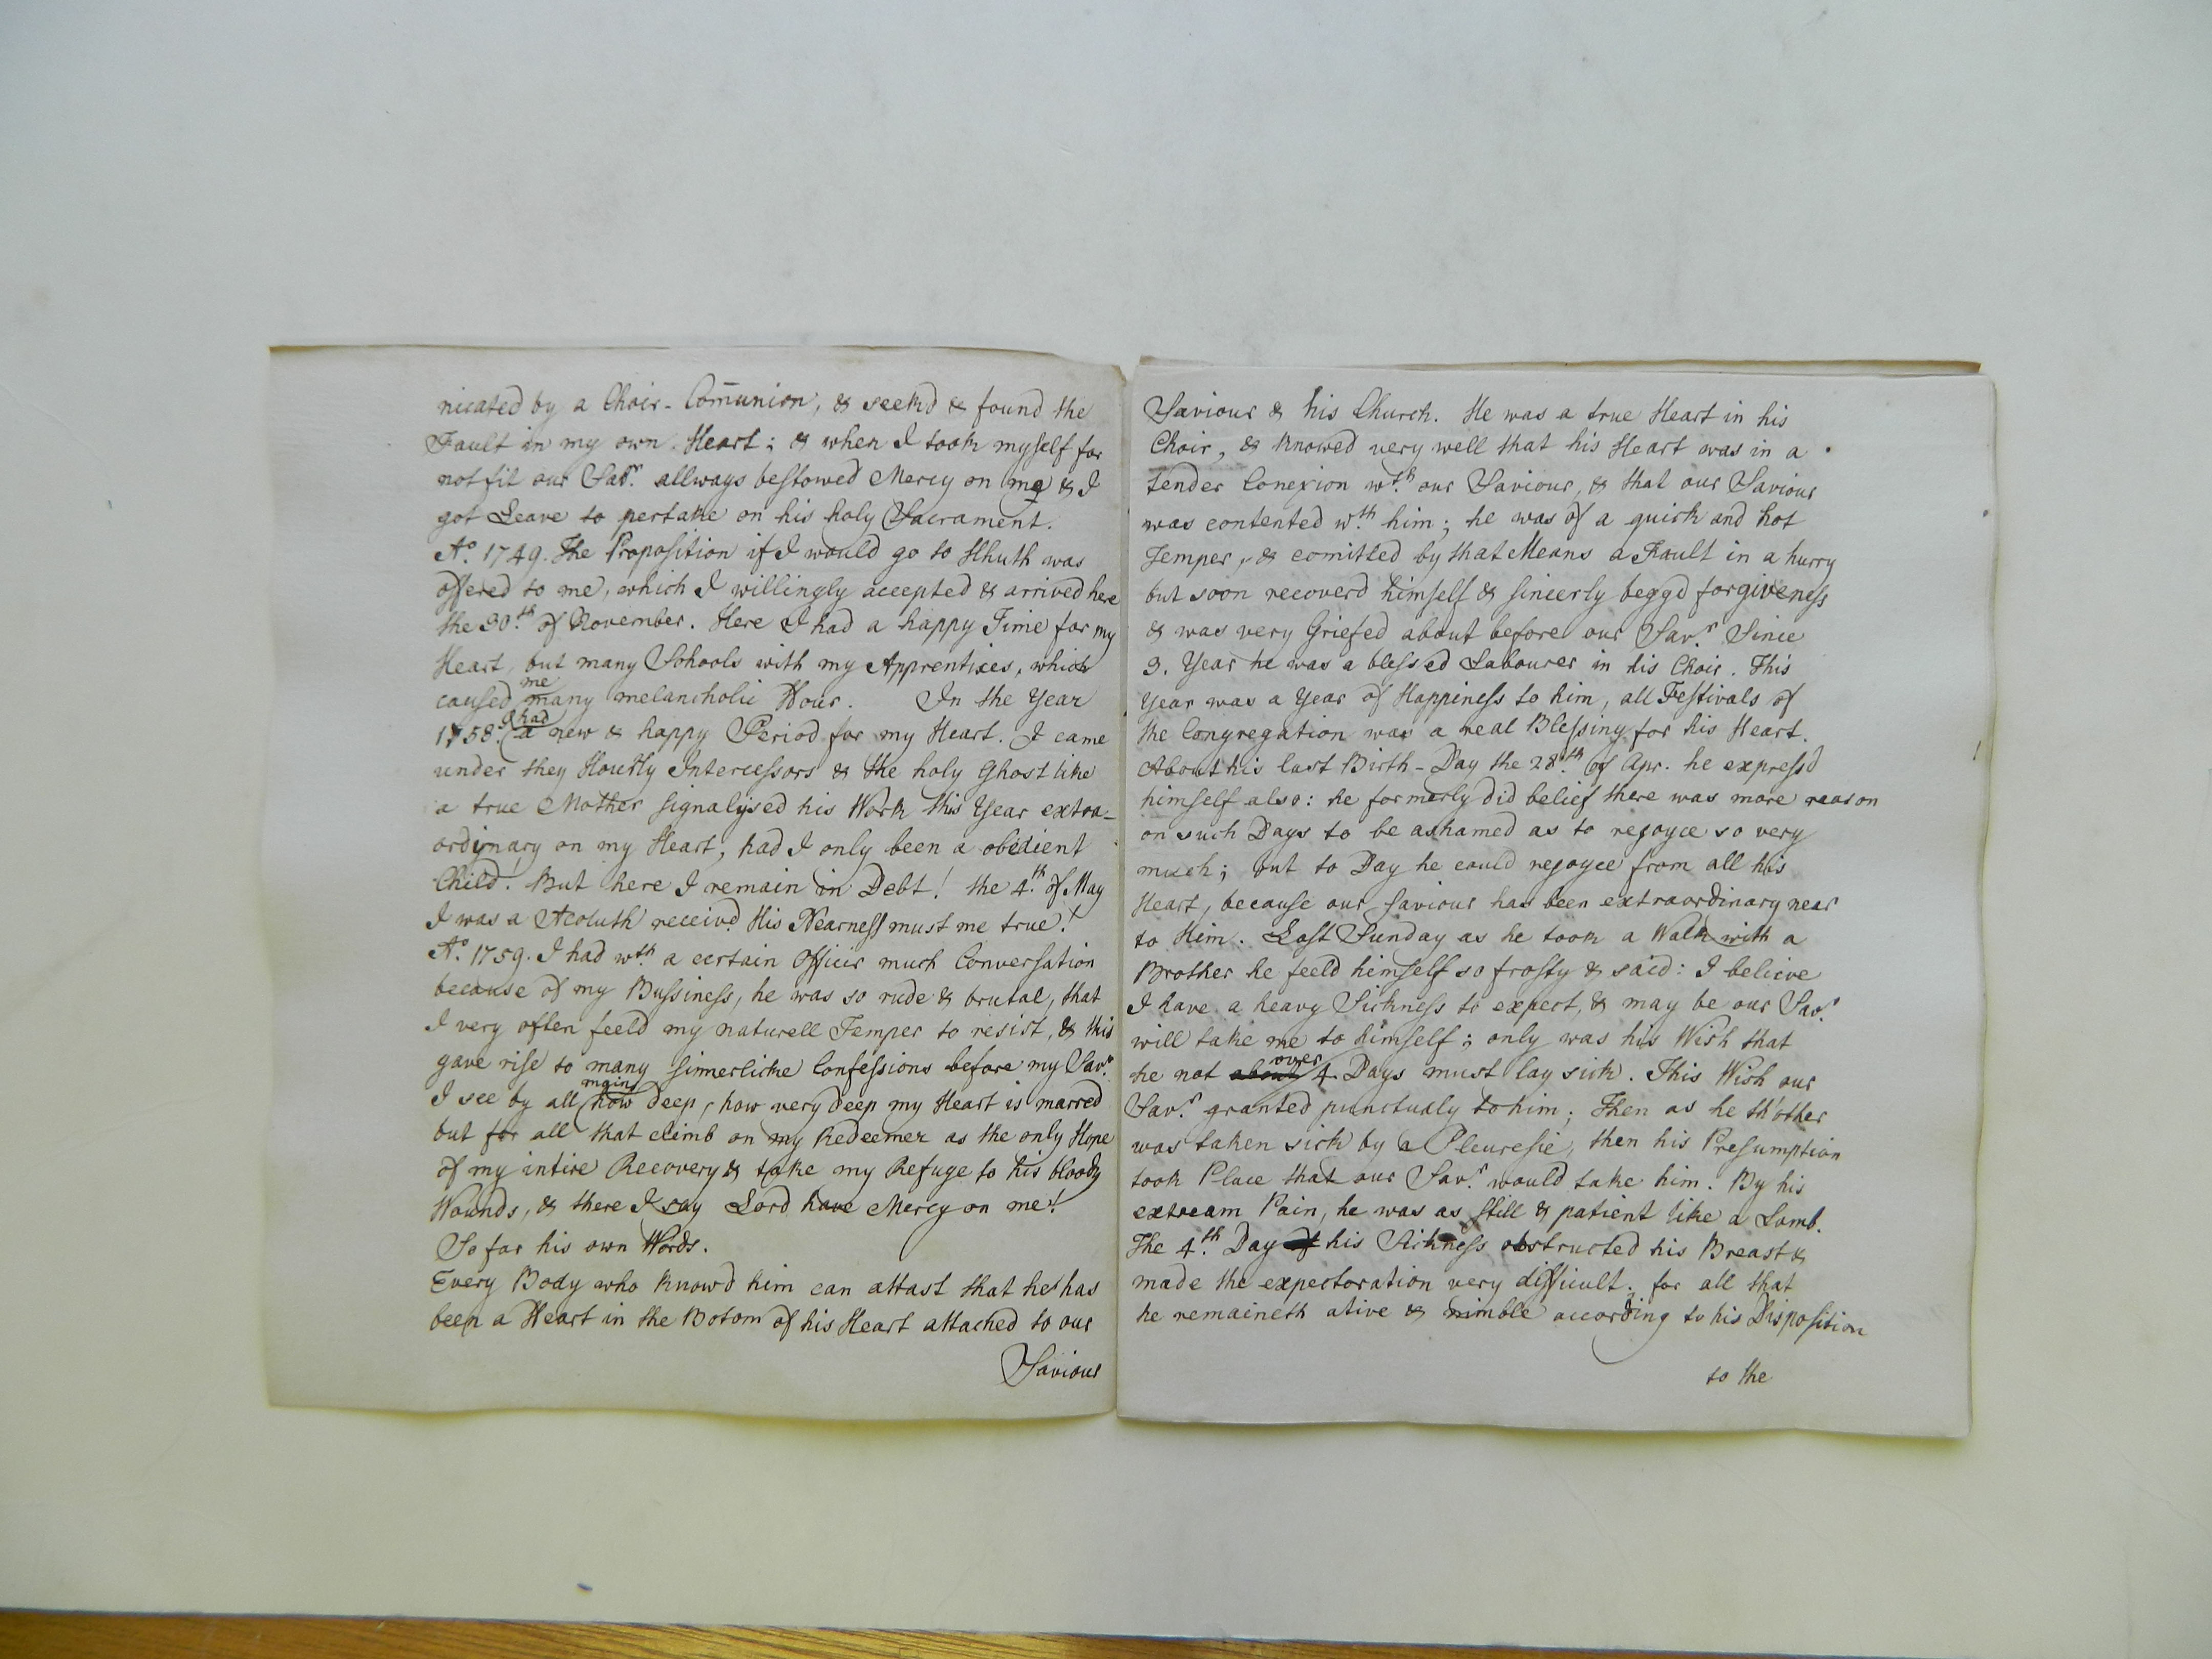 nicated by a Choir-Com̄union, & seek'd & found the
Fault in my own Heart; & when I took myself for
not fit our Savr. allways bestowed Mercy on me & I
got Leave to pertake on his holy Sacrament.
Ao. 1749. The Proposition if I would go to Hhuth was
offered to me, which I willingly accepted & arrived here
the 30th. of November. Here I had a happy Time for my
Heart, but many Schools with my Apprentices, which
caused me many melancholic Hour. In the Year
1758. I had a new & happy Period for my Heart. I came
under they Hourly Intercessors & the holy Ghost like
a true Mother signalysed his Work this Year extra-
ordynary on my Heart, had I only been a obedient
Child! But here I remain in Debt! the 4th. of May
I was a Acoluth receivd. His Nearness must me true!
Ao. 1759. I had wth. a certain Officir much Conversation
because of my Bussiness, he was so rude & brutal, that
I very often feeld my naturell Temper to resist, & this
gave rise to many sinnerlicke Confessions before my Savr.
I see by all how deep, how very deep my Heart is marred
but for all that climb on my Redeemer as the only Hope
of my intire Recovery & take my Refuge to his bloody
Wounds, & there I say Lord have Mercy on me!
So far his own Words.
Every Body who know'd him can attast that he has
been a Heart in the Botom of his Heart attached to our
Saviour
Saviour & his Church. He was a true Heart in his
Choir, & knowed very well that his Heart was in a
tender Conexion wth. our Saviour, & that our Saviour
was contented wth. him; he was of a quick and hot
Temper, & comitted by that Means a Fault in a hurry
but soon recoverd himself & sincerly beggd forgiveness
& was very Griefed about before our Savr. Since
3. Year he was a blessed Labourer in his Choir. This
Year was a Year of Happiness to him, all Festivals of
the Congregation was a real Blessing for his Heart.
About his last Birth-Day the 28th. of Apr. he express'd
himself also: he formerly did belief there was more reason
on such Days to be ashamed as to rejoyce so very
much; but to Day he could rejoyce from all his
Heart, because our Saviour had been extraordinary near
to Him. Last Sunday as he took a Walk with a
Brother he feeld himself so frosty & said: I believe
I have a heavy Sickness to expect, & may be our Savr.
will take me to himself; only was his Wish that
he not about over 4. Days must lay sick. This Wish our
Savr. granted punctualy to him; Then as he th'other
was taken sick by a Pleuresie, then his Presumption
took Place that our Savr. would take him. By his
extream Pain, he was as still & patient like a Lamb.
The 4th. Day of his Sickness obstructed his Breast &
made the expectoration very difficult; for all that
he remaineth ative & nimble according to his Disposition
to the